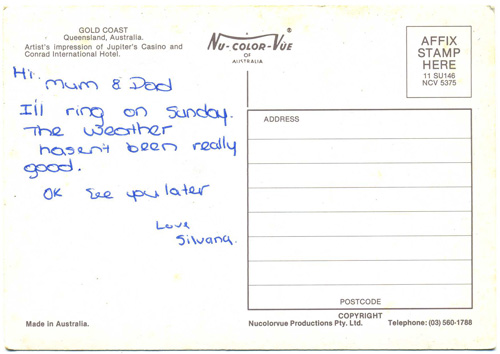 GOLD COAST
Queensland, Australia.
Artist's impression of Jupiter's Casino and
Conrad International Hotel.
Nu-COLOR-VUE®
OF
AUSTRALIA
AFFIX
STAMP
HERE
11 SU146
NCV 5375
Hi.
Mum & Dad
I'll ring on Sunday.
The weather
hasen't been really
good.
OK See you later
Love
Silvana.
ADDRESS
POSTCODE
Made in Australia.
COPYRIGHT
Nucolorvue Productions Pty. Ltd. Telephone: (03) 560-1788